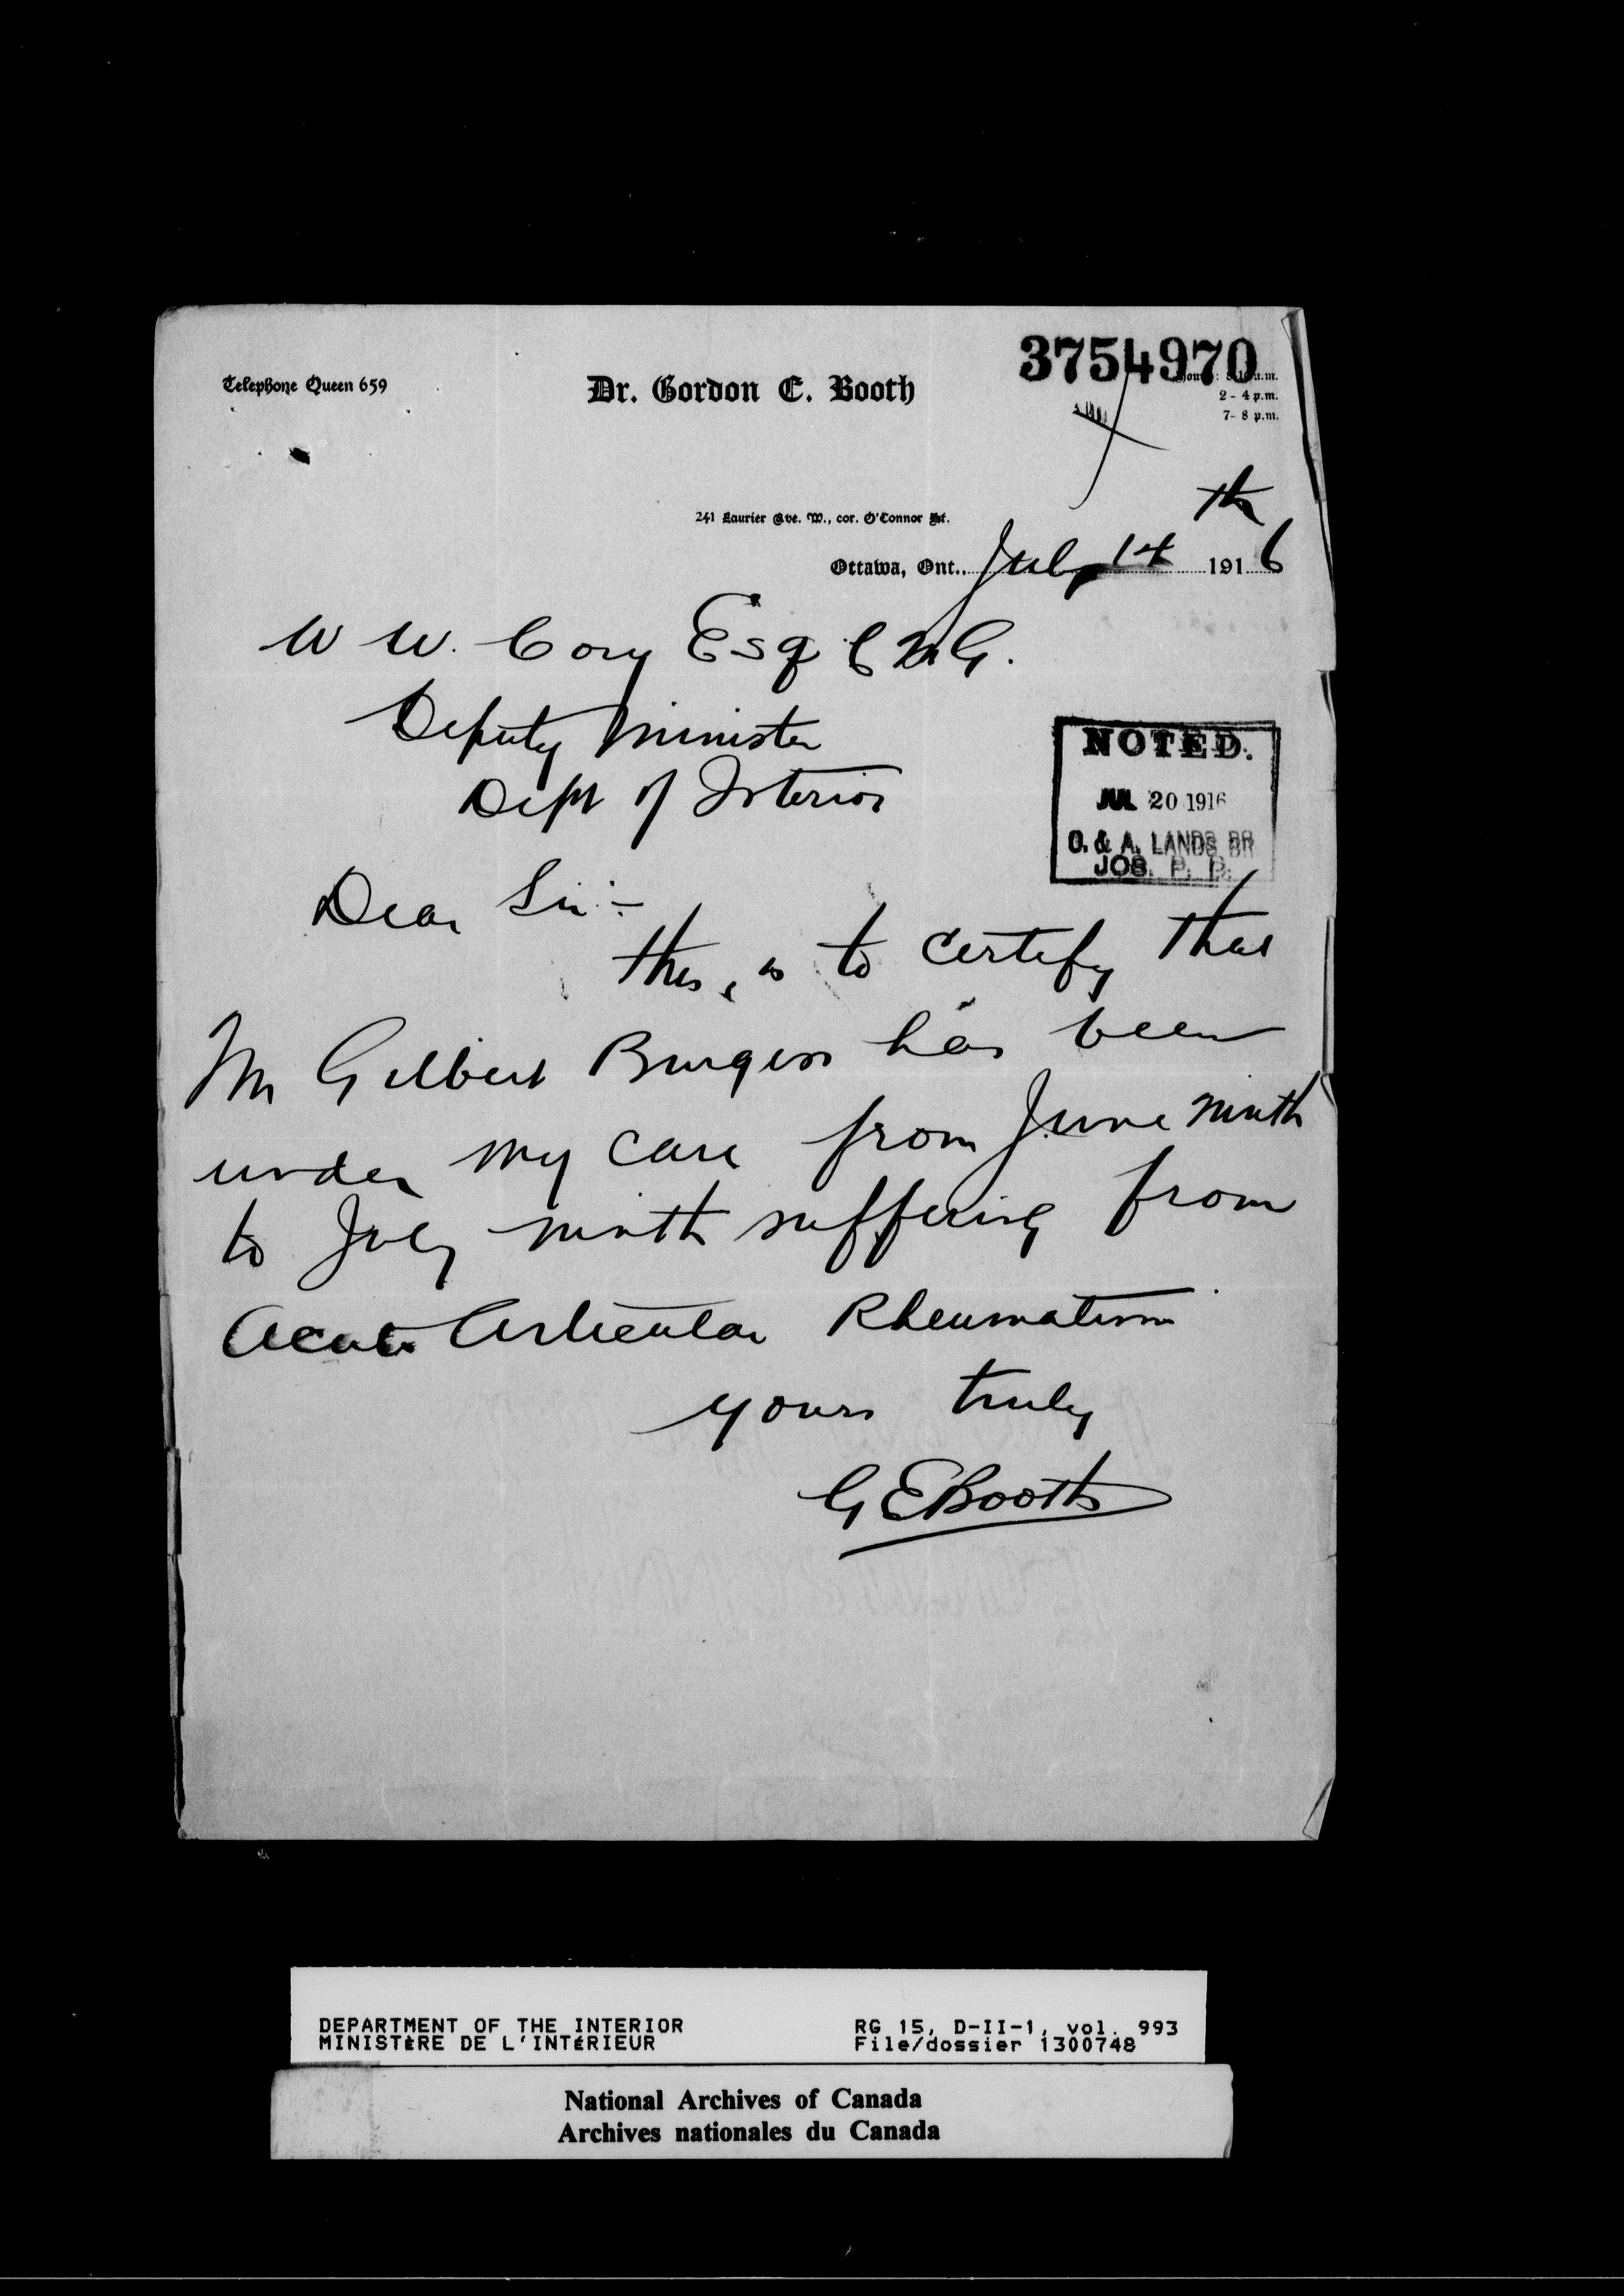 3754970
Telephone Queen 659
Dr. Gordon E. Booth
2 - 4 p.m.
7- 8 p.m.
241 Laurier Ave. W., cor. O'Connor St.
Ottawa, Ont. July 14th 1916
W W. Cory Esq C M G.
Deputy Minister
Dept of Interior
NOTED.
JUL 20 1916
O. & A. LANDS BR
JOS. P. P.
Dear Sir:-
this is to certify that
Mr Gilbert Burgess has been
under my care from June ninth
to July ninth suffering from
Acute Articular Rheumatism
yours truly
G E Booth
DEPARTMENT OF THE INTERIOR
MINISTÈRE DE L'INTÉRIEUR
RG 15, D-II-1, vol. 993
File/dossier 1300748
National Archives of Canada
Archives nationales du Canada